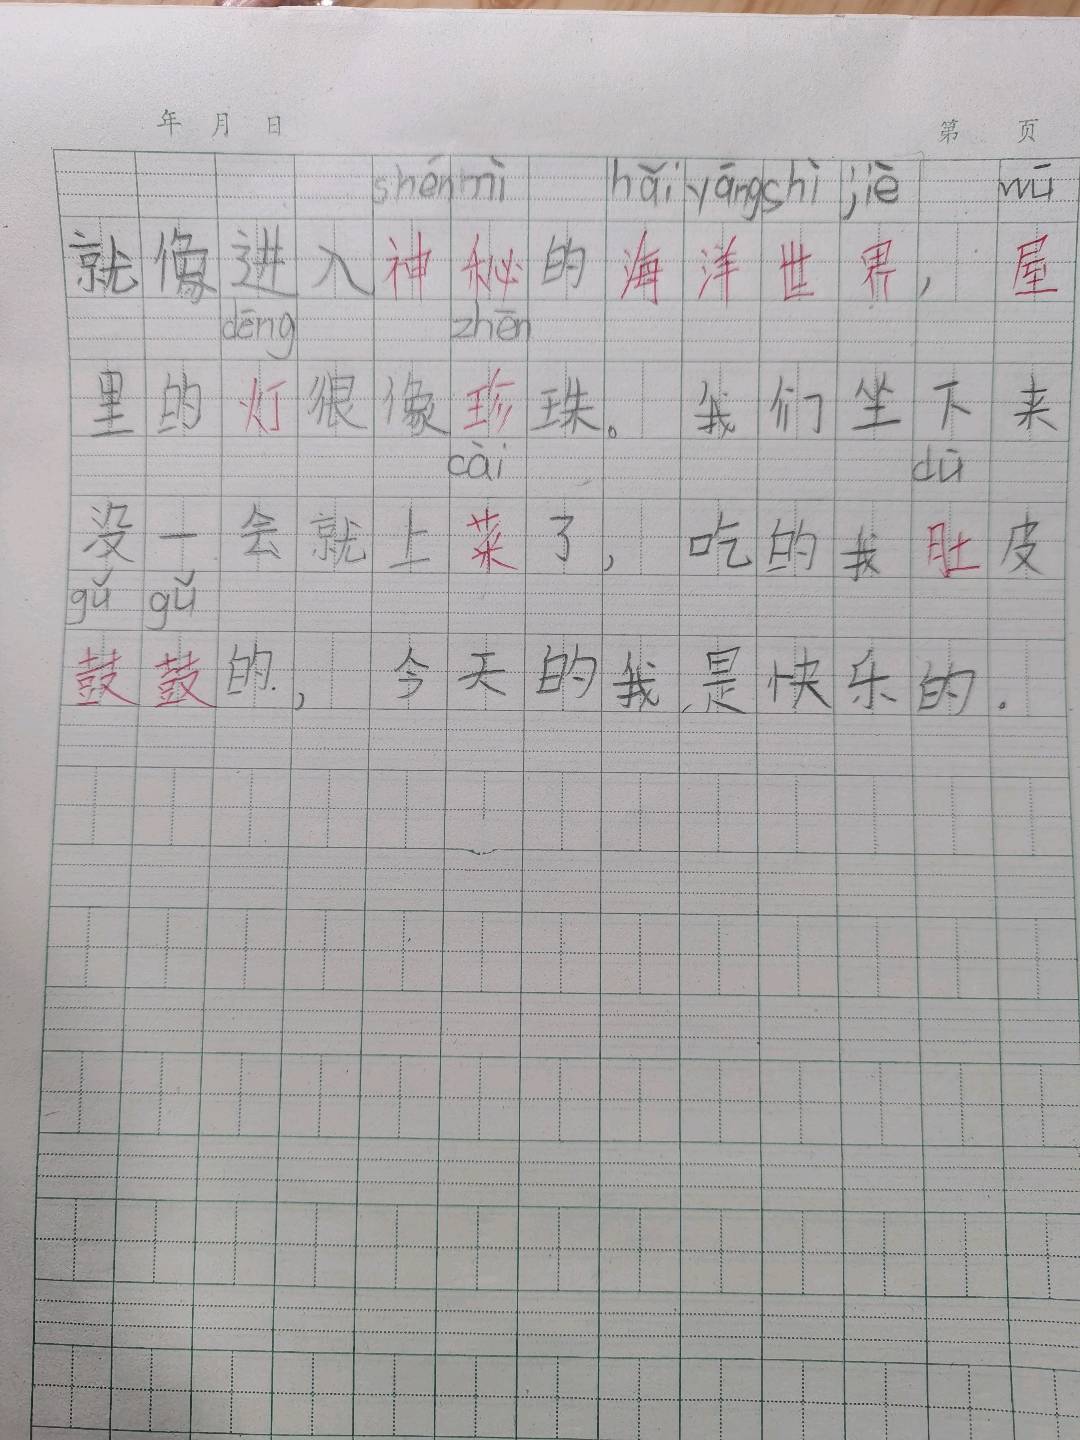 年 月 日 第 页
shén mì hǎi yáng shì jiè wū
就像进入神秘的海洋世界，屋
dēng zhēn
里的灯很像珍珠。我们坐下来
cài dù
没一会就上菜了，吃的我肚皮
gǔ gǔ
鼓鼓的，今天的我是快乐的.